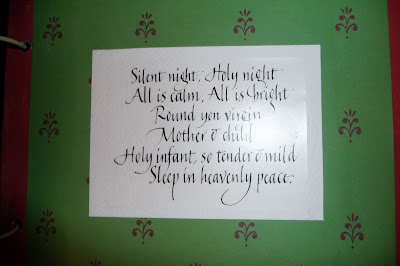 Silent night, Holy night
All is calm, All is bright
Round yon virgin
Mother & child
Holy infant, so tender & mild
Sleep in heavenly peace.